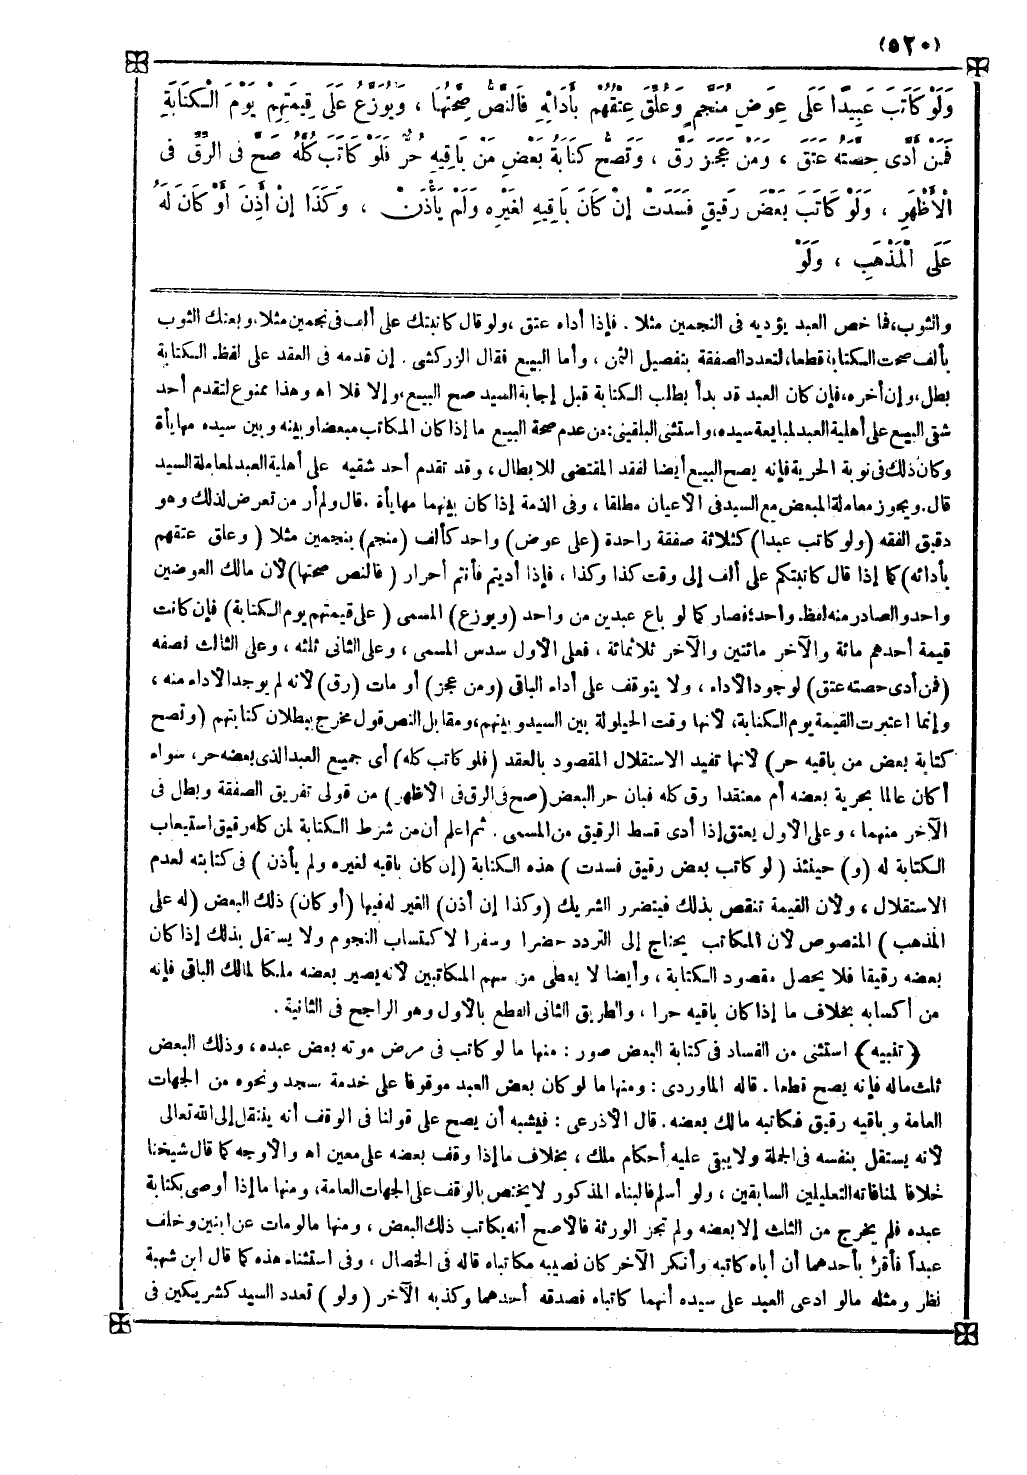 (٥٢٠)
وَلَوْ كَاتَبَ عَبِيدًا عَلَى عِوَضٍ مُنَجَّمٍ وَعُلِّقَ عِتْقُهُمْ بِأَدَائِهِ فَالنَّصُّ صِحَّتُهَا ، وَيُوَزَّعُ عَلَى قِيمَتِهِمْ يَوْمَ الْكِتَابَةِ
فَمَنْ أَدَّى حِصَّتَهُ عَتَقَ ، وَمَنْ عَجَزَ رَقَّ ، وَتَصِحُّ كِتَابَةُ بَعْضِ مَنْ بَاقِيهِ حُرٌّ فَلَوْ كَاتَبَ كُلَّهُ صَحَّ فِى الرِّقِّ فِى
الْأَظْهَرِ ، وَلَوْ كَاتَبَ بَعْضَ رَقِيقٍ فَسَدَتْ إِنْ كَانَ بَاقِيهِ لِغَيْرِهِ وَلَمْ يَأْذَنْ ، وَكَذَا إِنْ أَذِنَ أَوْ كَانَ لَهُ
عَلَى الْمَذْهَبِ ، وَلَوْ
والثوب، فما خص العبد يؤديه فى النجمين مثلا . فإذا أداه عتق ، ولو قال كاتبتك على ألف فى نجمين مثلا، وبعتك الثوب
بألف صحت الكتابة قطعا، لتعدد الصفقة بتفصيل الثمن ، وأما البيع فقال الزركشى . إن قدمه فى العقد على لفظ الكتابة
بطل، وإن أخره، فإن كان العبد قد بدأ بطلب الكتابة قبل إجابة السيد صح البيع، وإلا فلا اه وهذا ممنوع لتقدم أحد
شقى البيع على أهلية العبد لمبايعة سيده، واستثنى البلقينى: من عدم صحة البيع ما إذا كان المكاتب مبعضا وبينه وبين سيده مهايأة
وكان ذلك فى نوبة الحرية فإنه يصح البيع أيضا لفقد المقتضى للابطال ، وقد تقدم أحد شقيه على أهلية العبد لمعاملة السيد
قال. ويجوز معاملة المبعض مع السيد فى الأعيان مطلقا ، وفى الذمة إذا كان بينهما مهايأة . قال ولم أر من تعرض لذلك وهو
دقيق الفقه (ولو كاتب عبدا) كثلاثة صفقة واحدة (على عوض) واحد كألف (منجم) بنجمين مثلا ( وعلق عتقهم
بأدائه) كما إذا قال كاتبتكم على ألف إلى وقت كذا وكذا ، فإذا أديتم فأنتم أحرار ( فالنص صحتها) لأن مالك العوضين
واحد والصادر منه لفظ واحد؛ فصار كما لو باع عبدين من واحد (ويوزع) المسمى ( على قيمتهم يوم الكتابة) فإن كانت
قيمة أحدهم مائة والآخر مائتين والآخر ثلاثمائة ، فعلى الأول سدس المسمى ، وعلى الثانى ثلثه ، وعلى الثالث نصفه
(فمن أدى حصته عتق) لوجود الأداء ، ولا يتوقف على أداء الباقى (ومن عجز) أو مات (رق) لأنه لم يوجد الأداء منه ،
وإنما اعتبرت القيمة يوم الكتابة، لأنها وقت الحيلولة بين السيد وبينهم، ومقابل النص قول مخرج ببطلان كتابتهم (وتصح
كتابة بعض من باقيه حر) لأنها تفيد الاستقلال المقصود بالعقد (فلو كاتب كله) أى جميع العبد الذى بعضه حر، سواء
أكان عالما بحرية بعضه أم معتقدا رق كله فبان حر البعض (صح فى الرق فى الأظهر) من قولى تفريق الصفقة وبطل فى
الآخر منهما ، وعلى الأول يعتق إذا أدى قسط الرقيق من المسمى . ثم اعلم أن من شرط الكتابة لمن كله رقيق استيعاب
الكتابة له (و) حينئذ ( لو كاتب بعض رقيق فسدت ) هذه الكتابة (إن كان باقيه لغيره ولم يأذن ) فى كتابته لعدم
الاستقلال ، ولأن القيمة تنقص بذلك فيتضرر الشريك (وكذا إن أذن) الغير له فيها (أو كان) ذلك البعض (له على
المذهب ) المنصوص لأن المكاتب يحتاج إلى التردد حضرا وسفرا لاكتساب النجوم ولا يستقل بذلك إذا كان
بعضه رقيقا فلا يحصل مقصود الكتابة ، وأيضا لا يعطى من سهم المكاتبين لأنه يصير بعضه ملكا لمالك الباقى فإنه
من أكسابه بخلاف ما إذا كان باقيه حرا ، والطريق الثانى القطع بالأول وهو الراجح فى الثانية .
﴿ تنبيه ﴾ استثنى من الفساد فى كتابة البعض صور : منها ما لو كاتب فى مرض موته بعض عبده ، وذلك البعض
ثلث ماله فإنه يصح قطعا . قاله الماوردى : ومنها ما لو كان بعض العبد موقوفا على خدمة مسجد ونحوه من الجهات
العامة وباقيه رقيق فكاتبه مالك بعضه . قال الأذرعى : فيشبه أن يصح على قولنا فى الوقف أنه ينتقل إلى الله تعالى
لأنه يستقل بنفسه فى الجملة ولا يبقى عليه أحكام ملك ، بخلاف ما إذا وقف بعضه على معين اه والأوجه كما قال شيخنا
خلافا لمنافاته التعليلين السابقين ، ولو أسلم فالبناء المذكور لا يختص بالوقف على الجهات العامة، ومنها ما إذا أوصى بكتابة
عبده فلم يخرج من الثلث إلا بعضه ولم تجز الورثة فالأصح أنه يكاتب ذلك البعض ، ومنها ما لو مات عن ابنين وخلف
عبدا فأقر أحدهما أن أباه كاتبه وأنكر الآخر كان نصيبه مكاتبا قاله فى الخصال ، وفى استثناء هذه كما قال ابن شهبة
نظر ومثله مالو ادعى العبد على سيده أنهما كاتباه فصدقه أحدهما وكذبه الآخر ( ولو ) تعدد السيد كشريكين فى